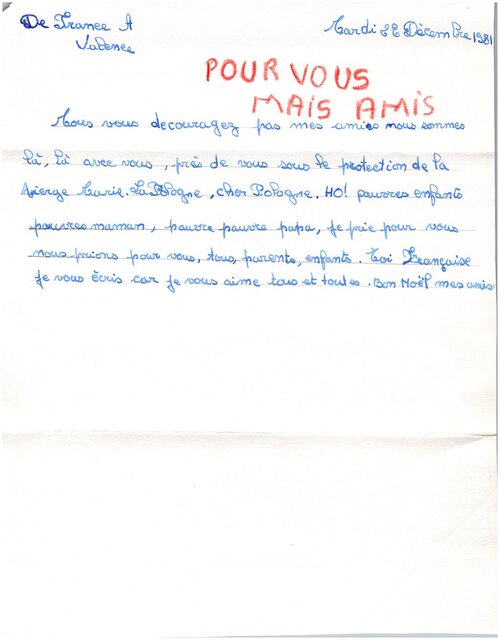 De France A
Valence
Mardi 22 Décembre 1981
POUR VOUS
MAIS AMIS
Nous vous decouragez pas mes amies nous sommes
là, là avec vous, près de vous sous le protection de la
Vierge Marie. La Pologne, cher Pologne. HO! pauvres enfants
pauvres maman, pauvre pauvre papa, je prie pour vous
nous prions pour vous, tous, parents, enfants. Toi Française
je vous écris car je vous aime tous et toutes. Bon Noël mes amis